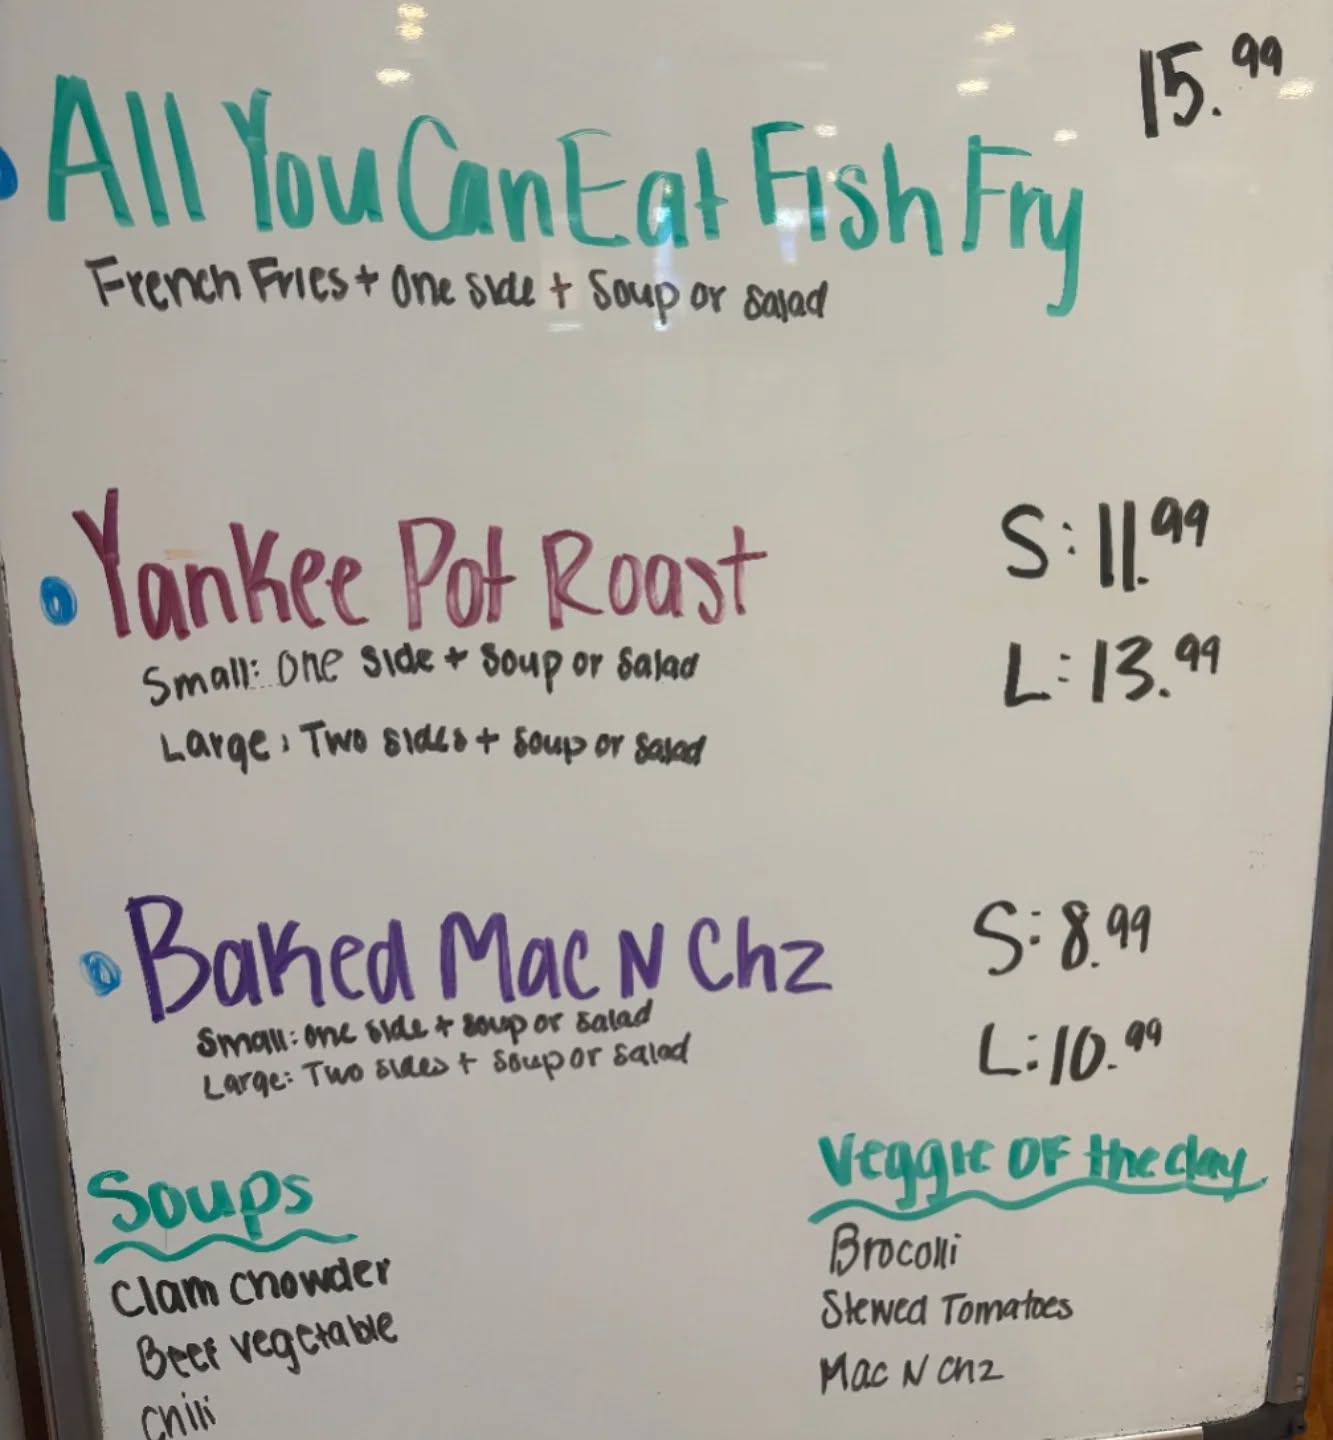 All You Can Eat Fish Fry 15.99
French Fries + One side + Soup or Salad
Yankee Pot Roast S: 11.99
Small: One side + Soup or Salad L: 13.99
Large: Two sides + Soup or Salad
Baked Mac N Chz S: 8.99
Small: One side + Soup or Salad
Large: Two sides + Soup or Salad L: 10.99
Soups
Clam Chowder
Beef Vegetable
Chili
Veggie Of the day
Brocolli
Stewed Tomatoes
Mac N Chz